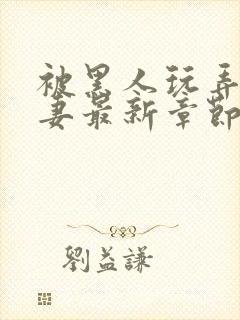 被黑人玩弄
妻最新章節
劉益謙